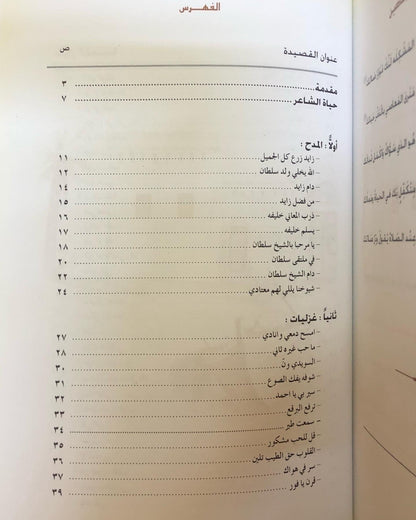 الفهرس
عنوان القصيدة ص
مقدمة ٣
حياة الشاعر ٧
أولاً : المدح :
- زايد زرع كل الجميل ١١
- الله يخلي ولد سلطان ١٢
- دام زايد ١٤
- من فضل زايد ١٥
- ذرب المعاني خليفه ١٦
- يسلم خليفه ١٧
- يا مرحبا بالشيخ سلطان ١٨
- في ملتقى سلطان ٢٠
- دام الشيخ سلطان ٢٢
- شيوخنا يللي لهم معتادي ٢٤
ثانياً : غزليات :
- امسح دمعي وانادي ٢٧
- ما حب غيره ثاني ٢٨
- السويدي ونّ ٣٠
- شوفه يفك الصوع ٣١
- سير بي يا احمد ٣٢
- ترفع البرقع ٣٣
- سمعت طير ٣٤
- قل للحب مشكور ٣٥
- القلوب حق الطيب تلين ٣٦
- سر في هواك ٣٧
- قرت يا فور ٣٩